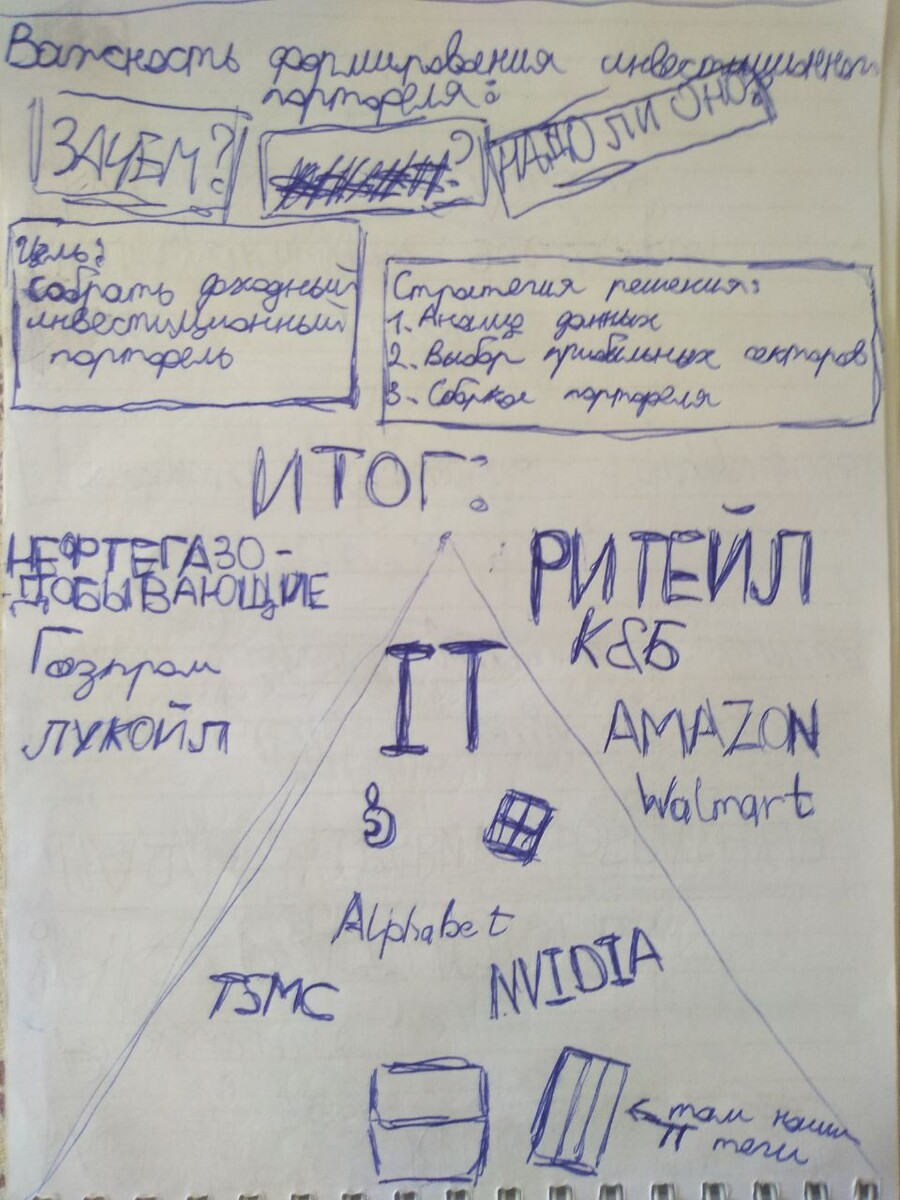 Важность формирования инвестиционного
портфеля:
ЗАЧЕМ?
?
НАДО ЛИ ОНО?
Цель:
собрать доходный
инвестиционный
портфель
Стратегия решения:
1. Анализ данных
2. Выбор прибыльных секторов
3. Сборка портфеля
ИТОГ:
НЕФТЕГАЗО-
ДОБЫВАЮЩИЕ
РИТЕЙЛ
IT
Газпром
К&Б
ЛУКОЙЛ
AMAZON
Walmart
Alphabet
TSMC
NVIDIA
там наши
теги